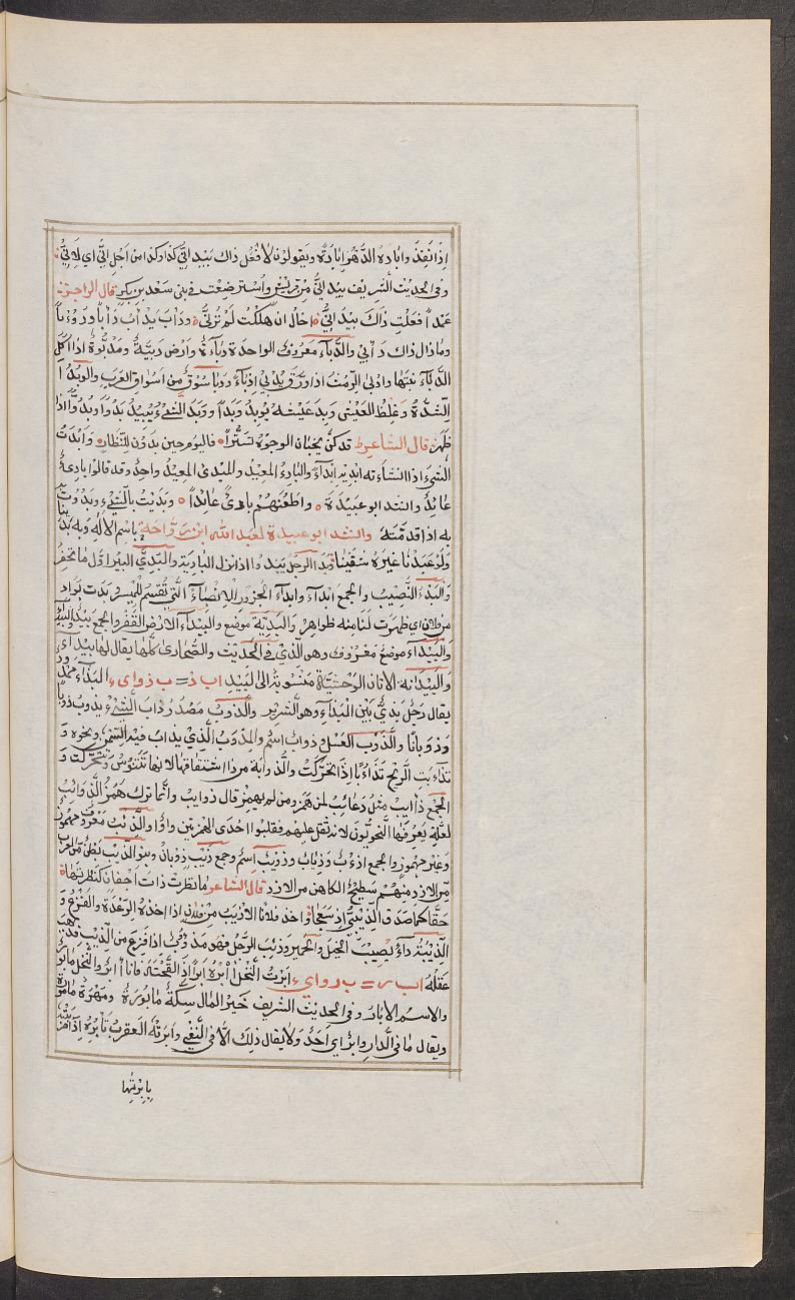 اِذَا نَفِدَ وابادهُ الدَّهْر اِبَادَةً ويقولون لا افْعَل ذاك بَيْد انِّي كذا وكذا من اَجْلِ انِّي اي لِاَنِّي
وفي الحديث الشريف بيد اَنِّي مِن قريش واسْترضِعت في بني سَعْد بن بكر قال الراجز
عَمْداً فعَلتُ ذاكَ بيْدَ انِّي اخال ان هلكتُ لمْ تُرنِّي ودَابَ يدْاب دَاْباً ودَؤُوباً
وما ذال ذاك دَأبي والدُّبَّاء مَعْرُوف الواحدة دُبَّاءة وارض دَبيَّة ومَدْبُوَّة اذا اكل
الدَّبَاءُ نبتَها وادْبى الرّمْث اذا وَرَّق يُدْبي اِدْباءً ودَبا سُوْق من اَسْوَاق العَرَب والوَبْدُ
الشدّة وغِلظُ العَيْش وبدَ عَيْشه يُوبد وَبَداً ووَبَد الشيْءُ يُبيدُ بَدْواً وبُدُوّاً اذا
ظهَرَ قال الشاعر قد كُنَّ يَخْبَان الوجوهَ تسَتُّراً فاليوم حين بدَوْن للنُّظار وَابْدَتُ
الشيءَ اذا انشاءته ابديه ابداءً والبَادِئُ المعِيْد والمبْدئ المعِيْدُ واحدٌ وقد قالوا بادئٌ
عائِدٌ وانشد ابو عبيْدَة واطعَنَهُم بادِئٌ عَائِداً وبَدَيْتُ بالشيْء وبَدَوْتُ
به اذا قدمْتَه وانشد ابو عبيدة لعبد الله ابن رَوَّاحة بِاسْمِ الاله وبه بَدَيْنا
وَلَوْ عَبَدْنا غيرَه شَقِيْنا وبَدَا الرجل يَبْدُو اذا نزل البَادِية والبَدِيّ البير اوّل ما تحْفَرُ
والبَدْءُ النَّصِيْب والجمع ابْداءٌ وابداء الجزور الانصباءُ الّتي تُقْسم للميْسر بَدَت بَوَادٍ
من فلان اي ظهَرت لنا منه ظواهِر والبَدِيَّة موضع والبَيْداءُ الارض القَفْر والجمع بيْدٌ
وَالبَيْدآء موضع مَعْرُوف وهو الّذي في الحديث والصَّحاري كلها يقال لها بيْداء
والبَيْدَانه الاتان الوَحْشيَّة مَنْسُوبة الى البَيد اب ذ = ب ذ واى، البَذاءُ
يقال رَجُل بَذيٌّ بَيِّن البَذَآءِ وهو الشرِّير والذَّوبُ مَصْدَر ذابَ الشيْءُ يذوب ذوباً
وذَوَبَاناً والذَّوْب العَسَل وذوابٌ اسْم والمِذوَبُ الّذي يذاب فيه السَّمْن ونحوه و
تذَاءَبَت الرِّيح تذَاءُباً اِذَا تحَرّكت والذُّوابَة من ذا اشتقاقها لانها تَتَنوَّسُ وتتحرَّكت و
الجمْع ذآيب مثل دعائِب لمن همَزَ ومن لم يهمِز قال ذوايب وانَّما ترك هَمْز الذَّوَائِبُ
لعلّة يَعْرِفها النَّحويُّونَ لانه ثقل عليهم فقلبُوا احْدَى الهمزتين واوًا والذِّئْب مَعْروف مهْمُوز
وغير مهموز والجمع اذْءُب وذِئاب وذؤيبٌ اسْم وجمع ذئب ذُؤبان وبنو الذيب بَطْن من العرب
من الازد منهم سَطِيحُ الكاهن من الازد قال الشاعر ما نظَرت ذات اَجْفان كَنَظرتها
حَقّاً كما صَدَق الذِّئبيُّ اذ سَجَعَا واخذ فلانا الاذْيَب من فلان اذا اخذهُ الرَّعْدة والفَزَع و
الذئبَةُ داءٌ يُصِيبُ الخيل والحمير وذئِبَ الرَّجُل فهو مَذْءُوبٌ اذا فزع من الذِّيب فذهَبَ
عَقلُهُ اب ر = ب ر واى، ابَرْتُ النَّخل اٰبُرهُ ابْراً اذَا لقَّحْتَه فانا اٰبرٌ والنَّخل مابُورٌ
والاسْم الابارُ وفي الحديث الشريف خَيرُ المال سِكّةٌ مابُورَة ومُهْرَة مَامُورَة
ويقال مَا في الدّارِ وابِرٌ اي اَحَدٌ ولا يقال ذلك الّا في النَّفْي وابَرَتْهُ العَقْربُ تأبُرُهُ اِذا ضَرَبَتْهُ
بِابْرَتِها